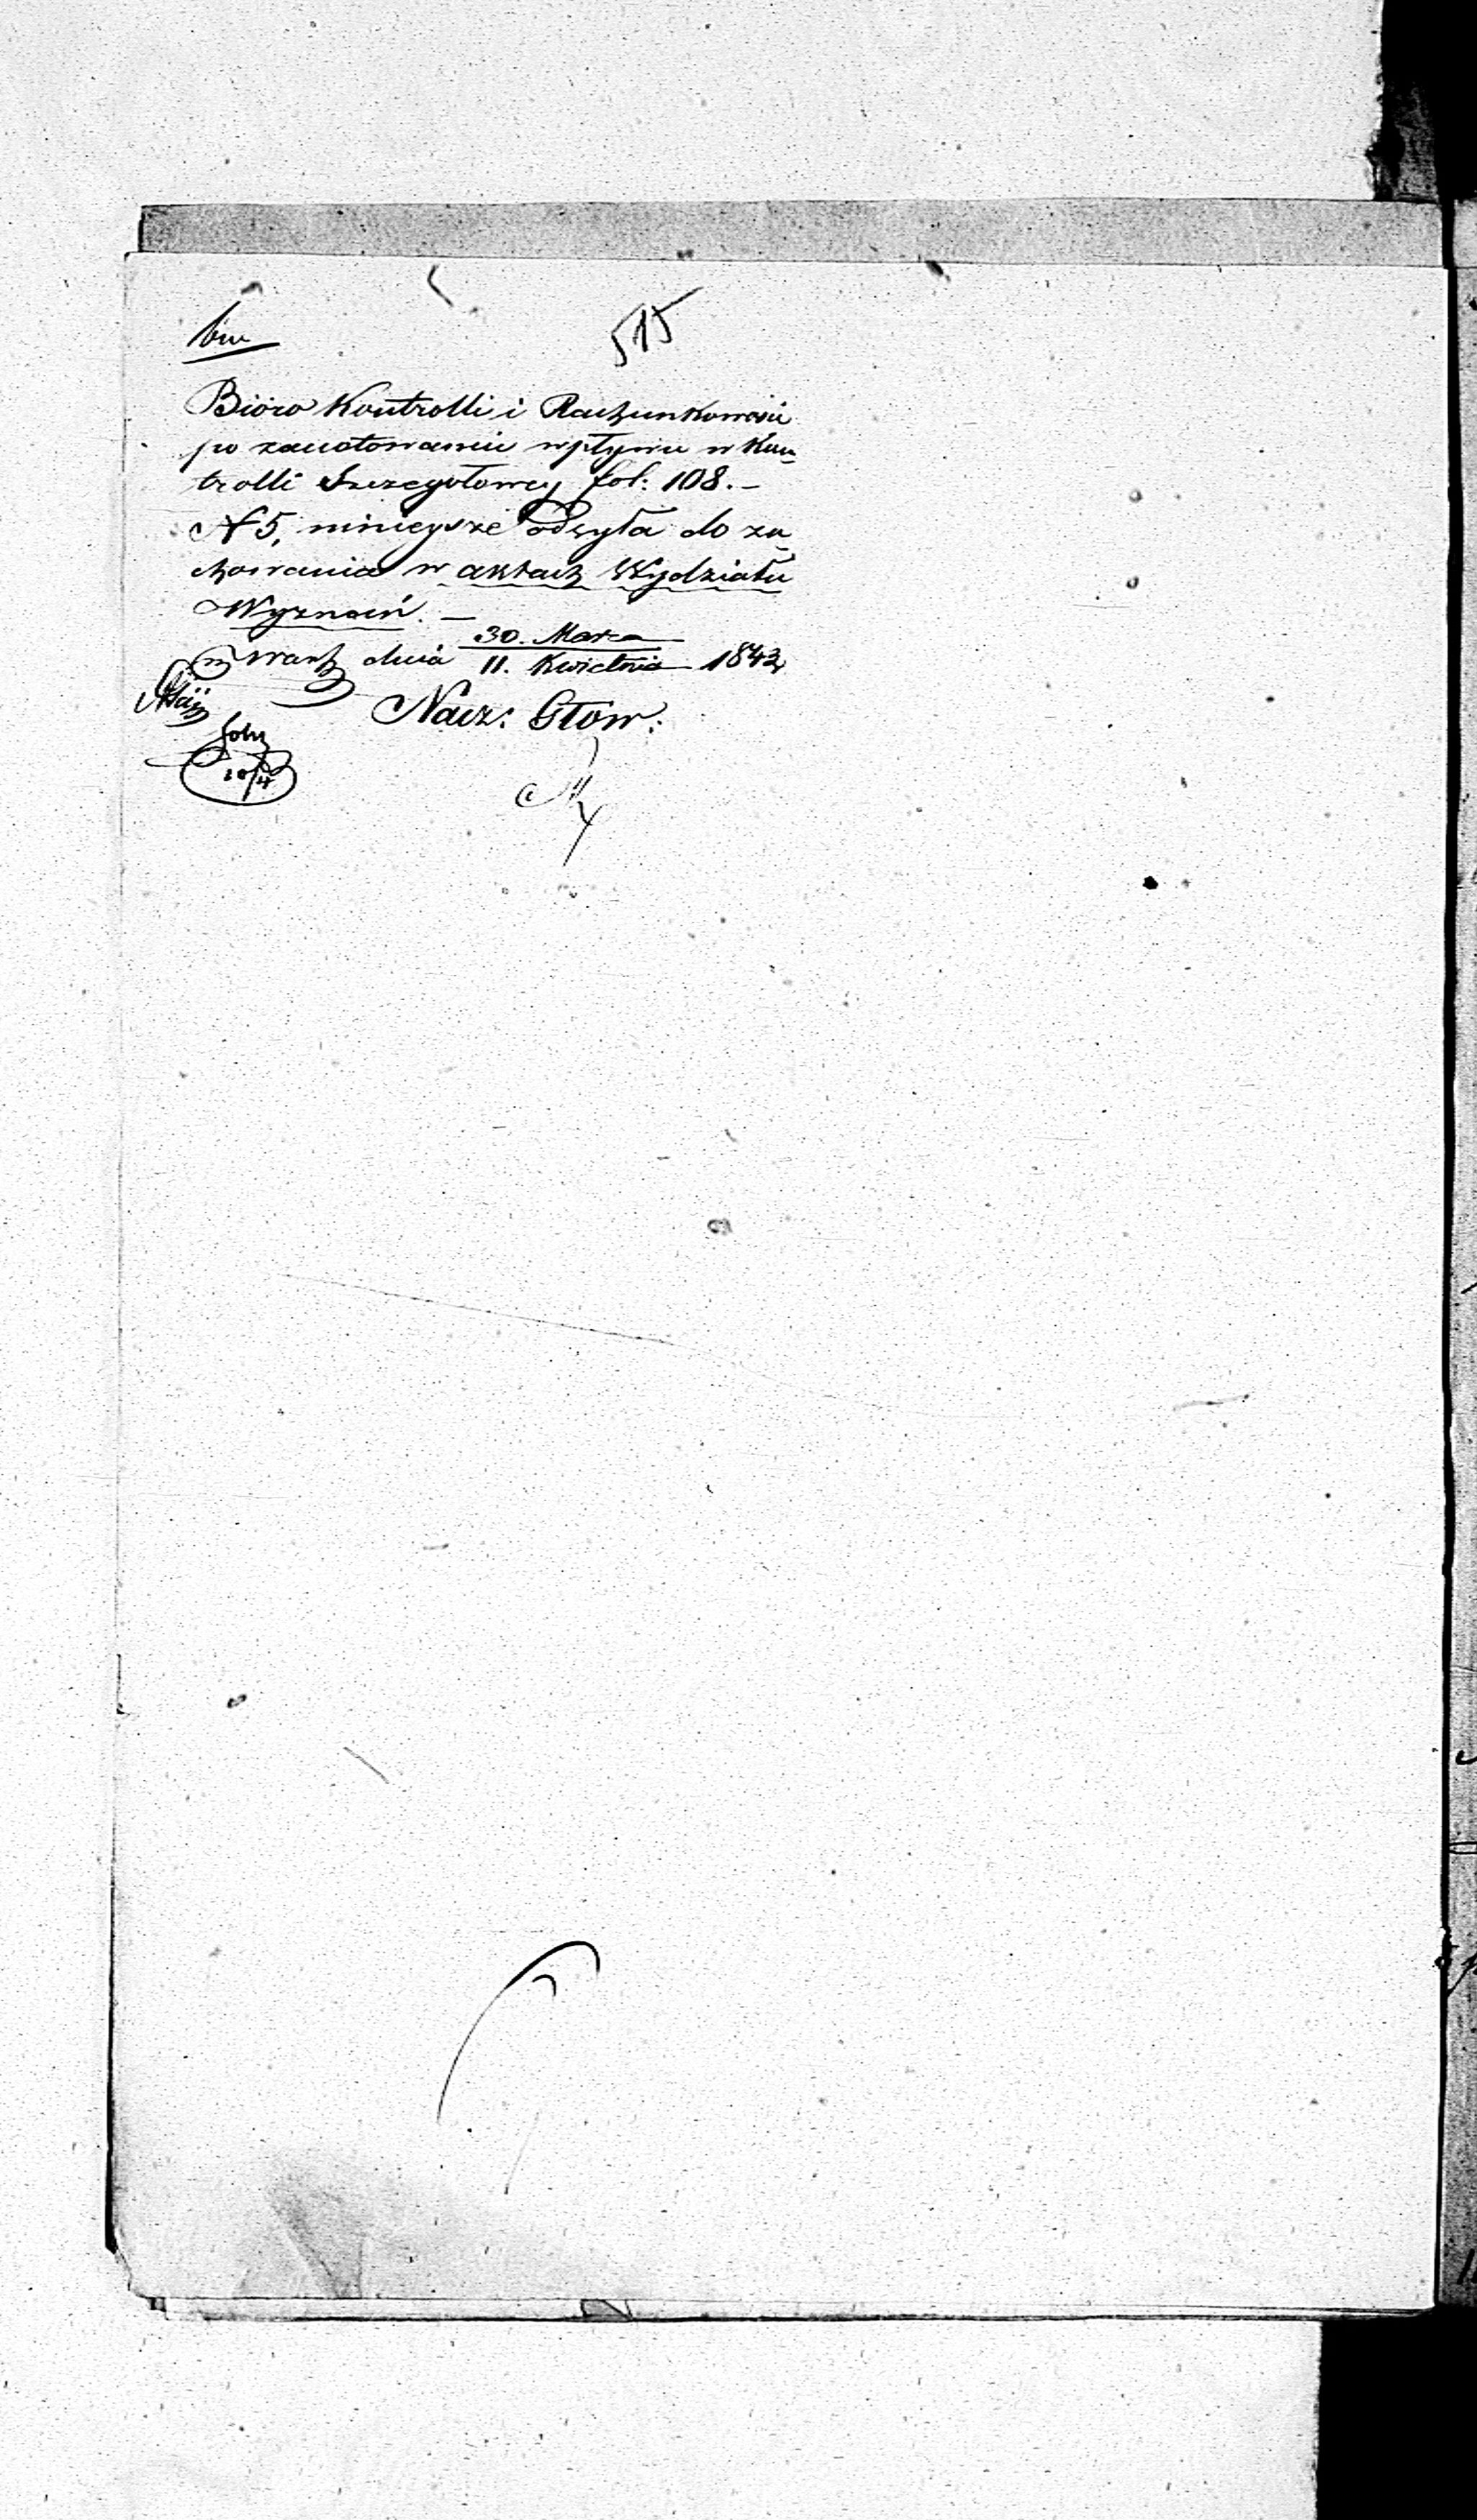 515
Bióro Kontrolli i Rachunkowości
po zanotowaniu wpływu w Kon-
trolli Szczegółowey fol: 108.—
N 5, ninieysze odsyła do za-
chowania w aktach Wydziału
Wyznań.—
w Warsz dnia 30. Marca / 11. Kwietnia 1843
Nacz: Głów: